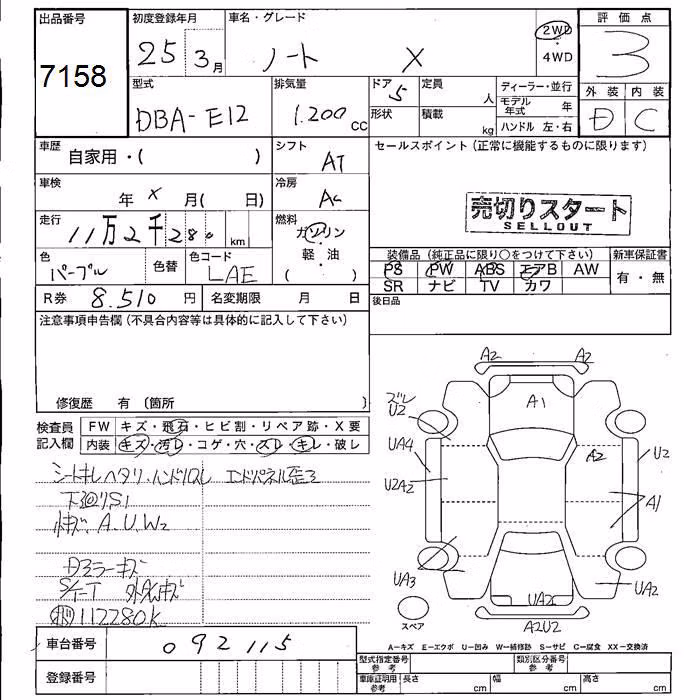 出品番号 初度登録年月 車名・グレード 評価点
7158 25 3月 ノート X 2WD・4WD 3
型式 排気量 ドア 定員 ディーラー・並行 外装 内装
DBA-E12 1.200 cc 5 人 モデル年式 年 D C
形状 積載 kg ハンドル 左・右
車歴 自家用・( ) シフト AT セールスポイント(正常に機能するものに限ります)
車検 年 X 月( 日) 冷房 AC
売切りスタート
SELLOUT
走行 11万2千280 km 燃料 ガソリン・軽・油 ( )
装備品(純正品に限り○をつけて下さい) 新車保証書
色 パープル 色替 色コード LAE PS PW ABS エアB AW 有・無
SR ナビ TV カワ
R券 8.510 円 名変期限 月 日 後日品
注意事項申告欄(不具合内容等は具体的に記入して下さい)
修復歴 有 〔箇所 〕
検査員記入欄 FW キズ・飛石・ヒビ割・リペア跡・X要
内装 キズ・汚レ・コゲ・穴・スレ・キレ・破レ
シートキレヘタリ・ハンドリスレ エンドパネル歪ミ
下廻リS1
A.U.W2
ドアミラーキズ
112280K
A2 A2
ズレ
U2
A1
UA4 A2 U2
U2A2 A1
UA3 UA2 UA2
スペア A2U2
A=キズ E=エクボ U=凹み W=補修跡 S=サビ C=腐食 XX=交換済
車台番号 092115
型式指定番号 参考 類別区分番号 参考
登録番号 車庫証明用 参考 長さ cm 幅 cm 高さ cm